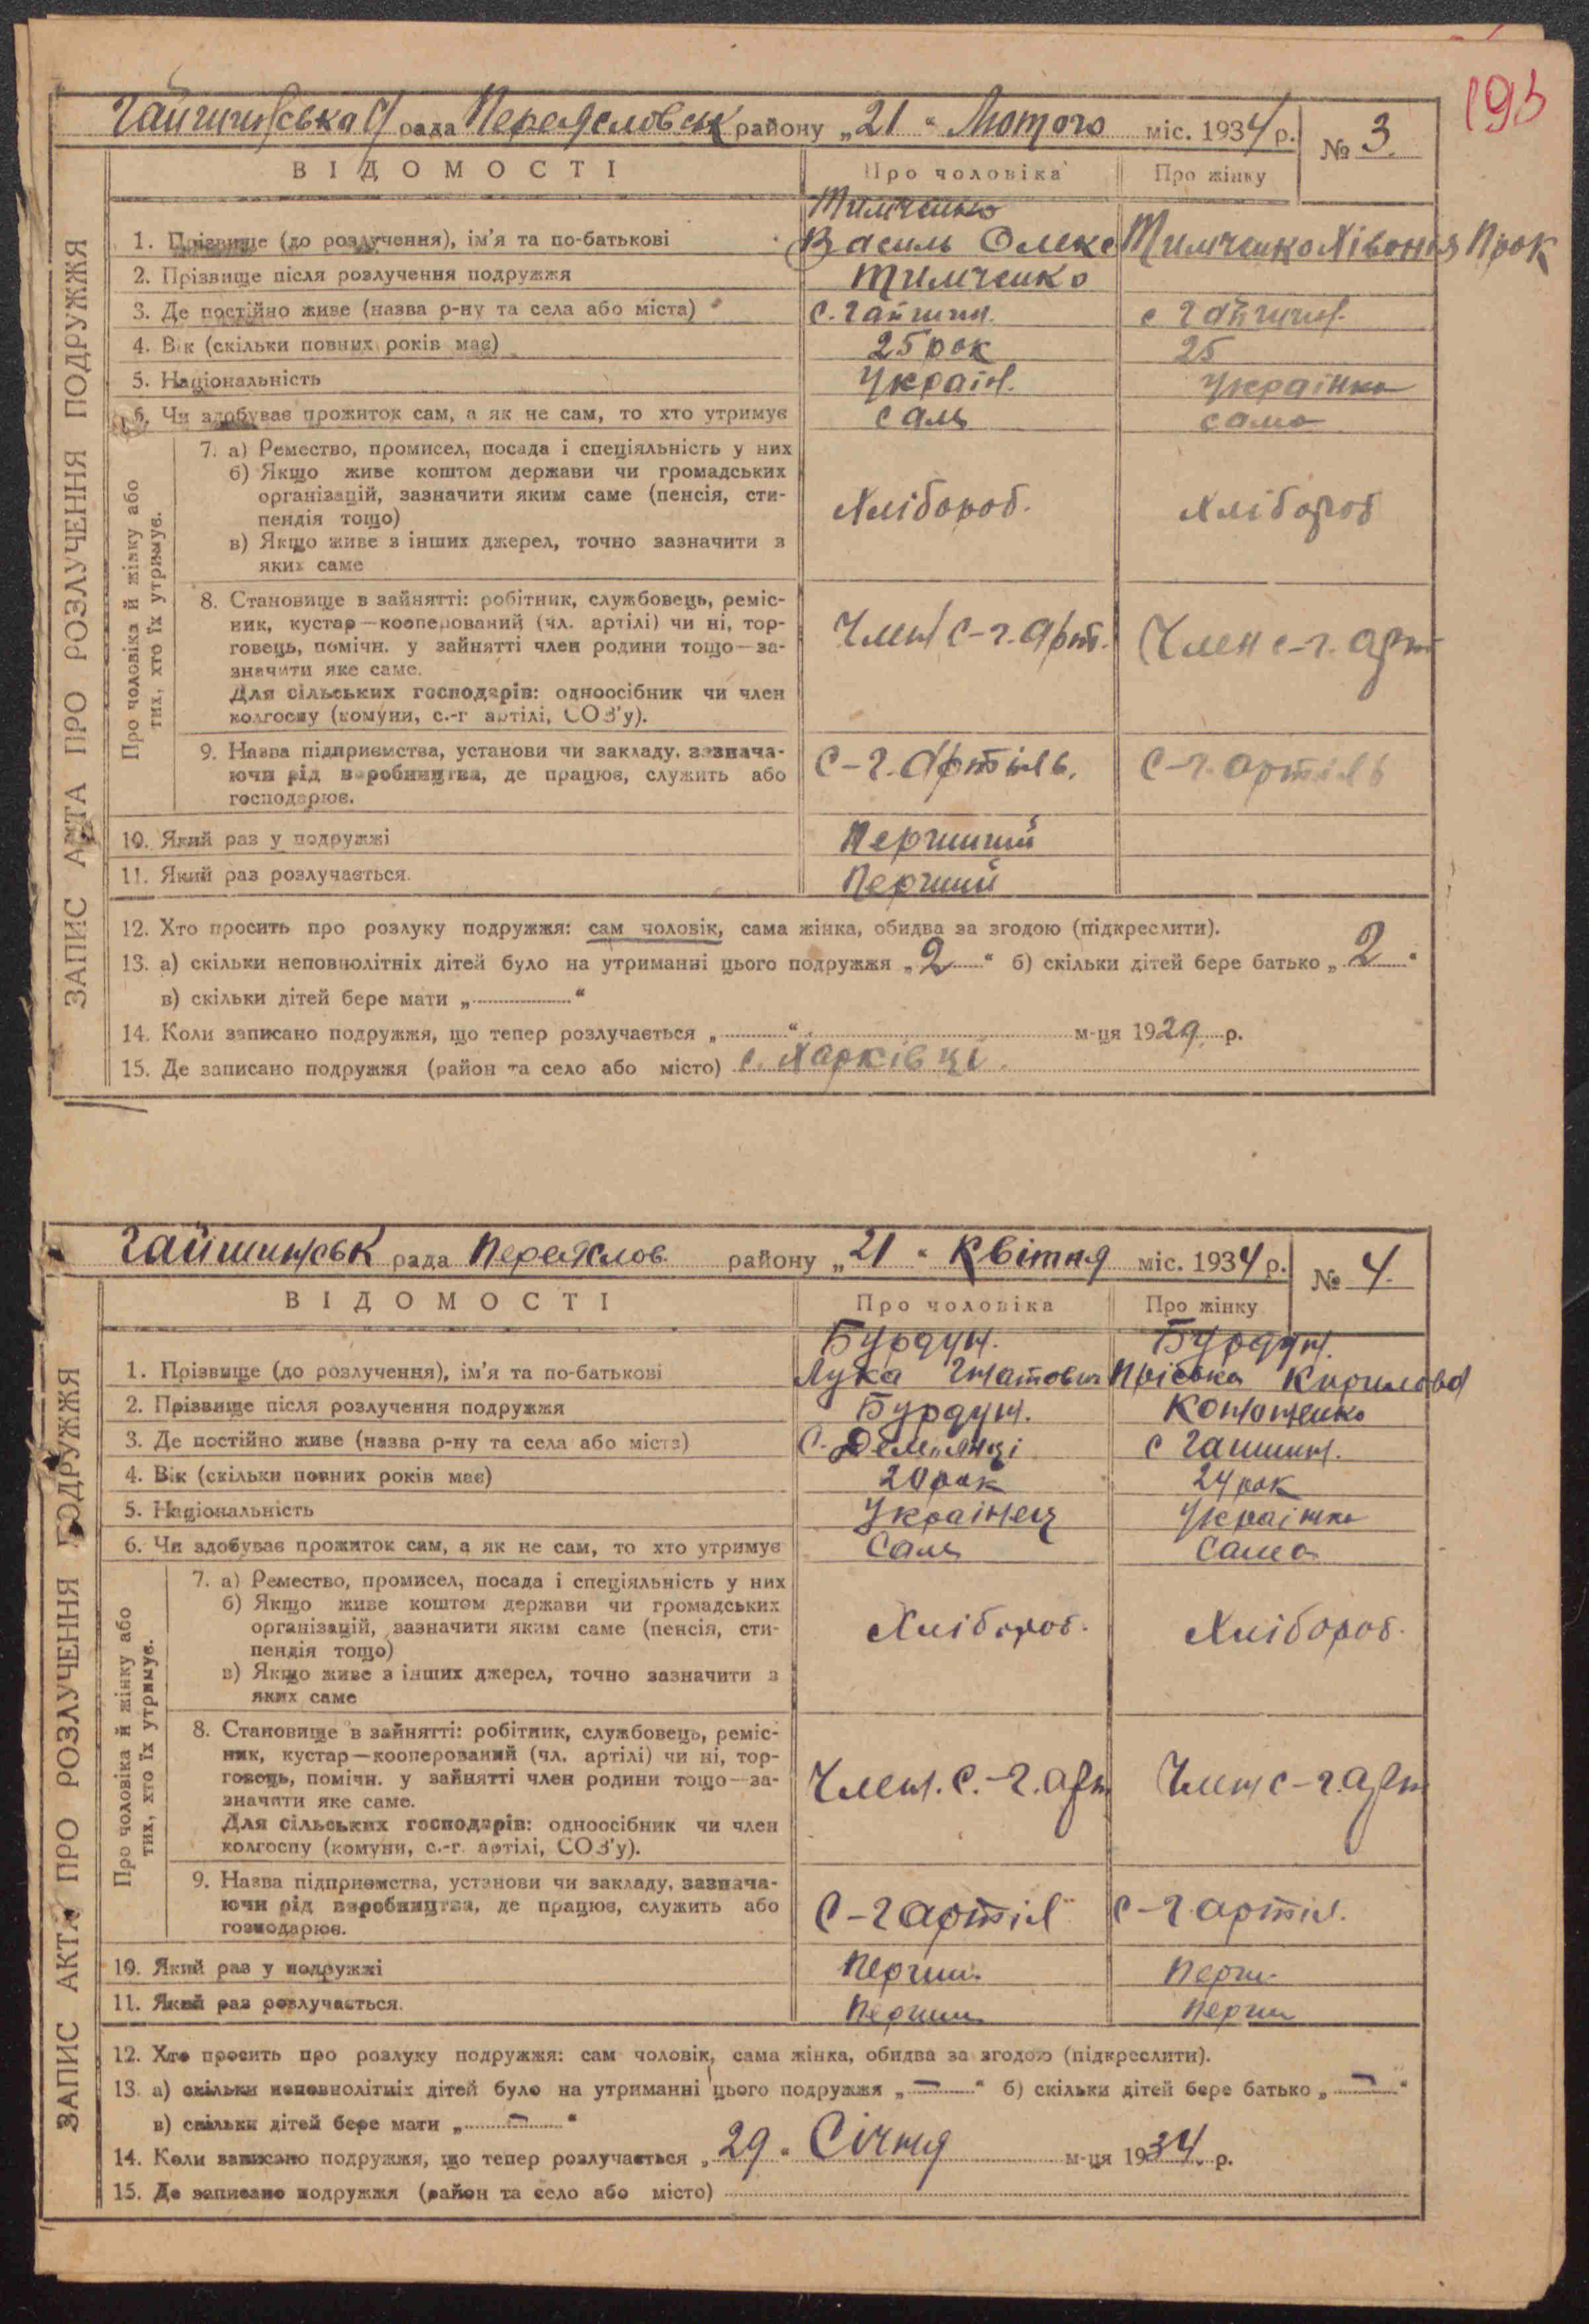 193
Гайшинська с/рада Переяславськ району „21“ Лютого міс. 1934 р. № 3.
ВІДОМОСТІ Про чоловіка Про жінку
ЗАПИС АКТА ПРО РОЗЛУЧЕННЯ ПОДРУЖЖЯ
Тимченко
1. Прізвище (до розлучення), ім'я та по-батькові Василь Олекс Тимченко Хівоння Прок
2. Прізвище після розлучення подружжя Тимченко
3. Де постійно живе (назва р-ну та села або міста) с. Гайшин. с Гайшин.
4. Вік (скільки повних років має) 25 рок 25
5. Національність Україн. Українка
6. Чи здобуває прожиток сам, а як не сам, то хто утримує сам сама
Про чоловіка й жінку або тих, хто їх утримує.
7. а) Ремество, промисел, посада і спеціяльність у них
б) Якщо живе коштом держави чи громадських
організацій, зазначити яким саме (пенсія, сти-
пендія тощо) Хлібороб. Хлібороб
в) Якщо живе з інших джерел, точно зазначити з
яких саме
8. Становище в зайнятті: робітник, службовець, реміс-
ник, кустар—кооперований (чл. артілі) чи ні, тор-
говець, помічн. у зайнятті член родини тощо—за- Член с-г. арт. Член с-г. арт
значити яке саме.
Для сільських господарів: одноосібник чи член
колгоспу (комуни, с.-г артілі, СОЗ'у).
9. Назва підприємства, установи чи закладу, зазнача-
ючи рід виробництва, де працює, служить або С-г. Артиль. С-г. артиль
господарює.
10. Який раз у подружжі Перший
11. Який раз розлучається. Перший
12. Хто просить про розлуку подружжя: сам чоловік, сама жінка, обидва за згодою (підкреслити).
13. а) скільки неповнолітніх дітей було на утриманні цього подружжя „2“ б) скільки дітей бере батько „2“
в) скільки дітей бере мати „ “
14. Коли записано подружжя, що тепер розлучається „ “ м-ця 1929 р.
15. Де записано подружжя (район та село або місто) с. Харківці.
Гайшинськ рада Переяслов. району „21“ Квітня міс. 1934 р. № 4.
ВІДОМОСТІ Про чоловіка Про жінку
ЗАПИС АКТА ПРО РОЗЛУЧЕННЯ ПОДРУЖЖЯ
Бурдун. Бурдун.
1. Прізвище (до розлучення), ім'я та по-батькові Лука Гнатович Пріська Кирилова
2. Прізвище після розлучення подружжя Бурдун. Кононенко
3. Де постійно живе (назва р-ну та села або міста) с. Демьянці с Гайшин.
4. Вік (скільки повних років має) 20 рок 24 рок
5. Національність Українец Українка
6. Чи здобуває прожиток сам, а як не сам, то хто утримує Сам Сама
Про чоловіка й жінку або тих, хто їх утримує.
7. а) Ремество, промисел, посада і спеціяльність у них
б) Якщо живе коштом держави чи громадських
організацій, зазначити яким саме (пенсія, сти- Хлібороб. Хлібороб.
пендія тощо)
в) Якщо живе з інших джерел, точно зазначити з
яких саме
8. Становище в зайнятті: робітник, службовець, реміс-
ник, кустар—кооперований (чл. артілі) чи ні, тор-
говець, помічн. у зайнятті член родини тощо—за- Член. с.-г. арт Член с-г. арт
значити яке саме.
Для сільських господарів: одноосібник чи член
колгоспу (комуни, с.-г. артілі, СОЗ'у).
9. Назва підприємства, установи чи закладу, зазнача-
ючи рід виробництва, де працює, служить або С-г артіл С-г артіл.
господарює.
10. Який раз у подружжі Перши. Перш.
11. Який раз розлучається. Перши Перши
12. Хто просить про розлуку подружжя: сам чоловік, сама жінка, обидва за згодою (підкреслити).
13. а) скільки неповнолітніх дітей було на утриманні цього подружжя „—“ б) скільки дітей бере батько „—“
в) скільки дітей бере мати „—“
14. Коли записано подружжя, що тепер розлучається „29“ Січня м-ця 1934 р.
15. Де записано подружжя (район та село або місто)